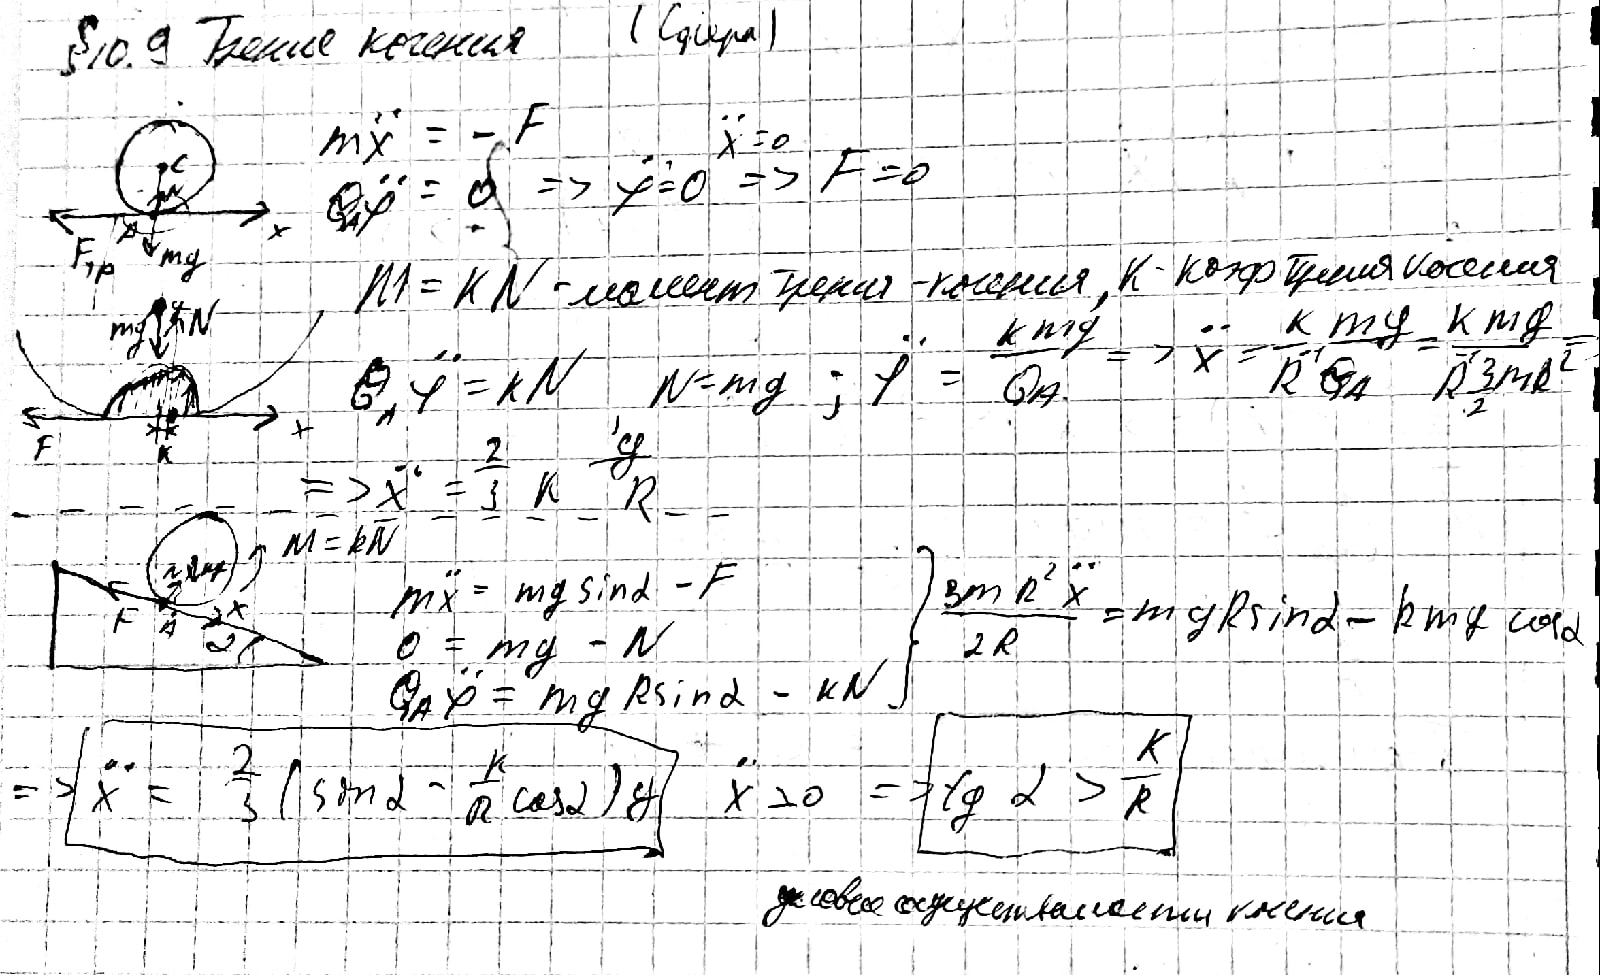 §10.9 Трение качения (Сфера)
mẍ = - F ẍ=0
Q_A φ̈ = 0 => φ̈=0 => F=0
C
N
A
x
F_тр
mg
M = kN - момент трения - качения, K - коэф трения качения
mg N
Q_A φ̈ = kN N=mg ; φ̈ = kmg/Q_A => ẍ = k mg/(R⁻¹ Q_A) = kmg/(R⁻¹ 3/2 mR²) =
F
K
x
=> ẍ = 2/3 K g/R
M = kN
mẍ = mg sinα - F
0 = mg - N
Q_A φ̈ = mg R sinα - kN
3mR² ẍ/2R = mgR sinα - kmg cosα
F A x α
=> ẍ = 2/3 (sinα - K/R cosα) g ẍ >0 => tg α > K/R
условие осуществимости качения